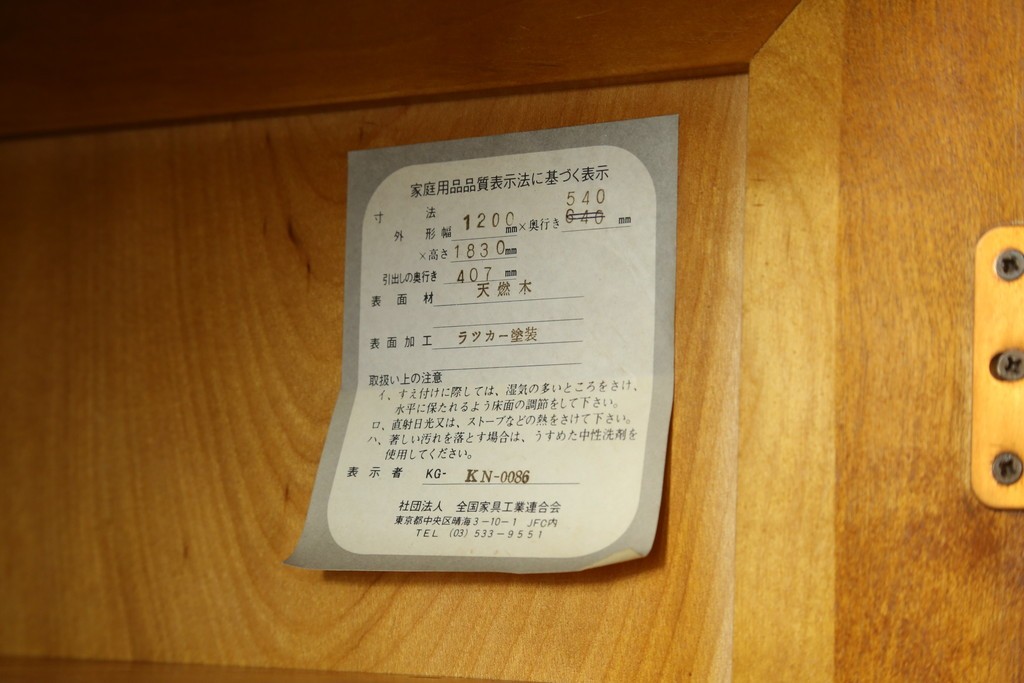 家庭用品品質表示法に基づく表示
寸法
540
外形幅 1200mm×奥行き 640 mm
×高さ 1830mm
引出しの奥行き 407 mm
表面材 天燃木
表面加工 ラツカー塗装
取扱い上の注意
イ、すえ付けに際しては、湿気の多いところをさけ、
水平に保たれるよう床面の調節をして下さい。
ロ、直射日光又は、ストーブなどの熱をさけて下さい。
ハ、著しい汚れを落とす場合は、うすめた中性洗剤を
使用してください。
表示者 KG- KN-0086
社団法人 全国家具工業連合会
東京都中央区晴海3-10-1 JFC内
TEL (03) 533-9551